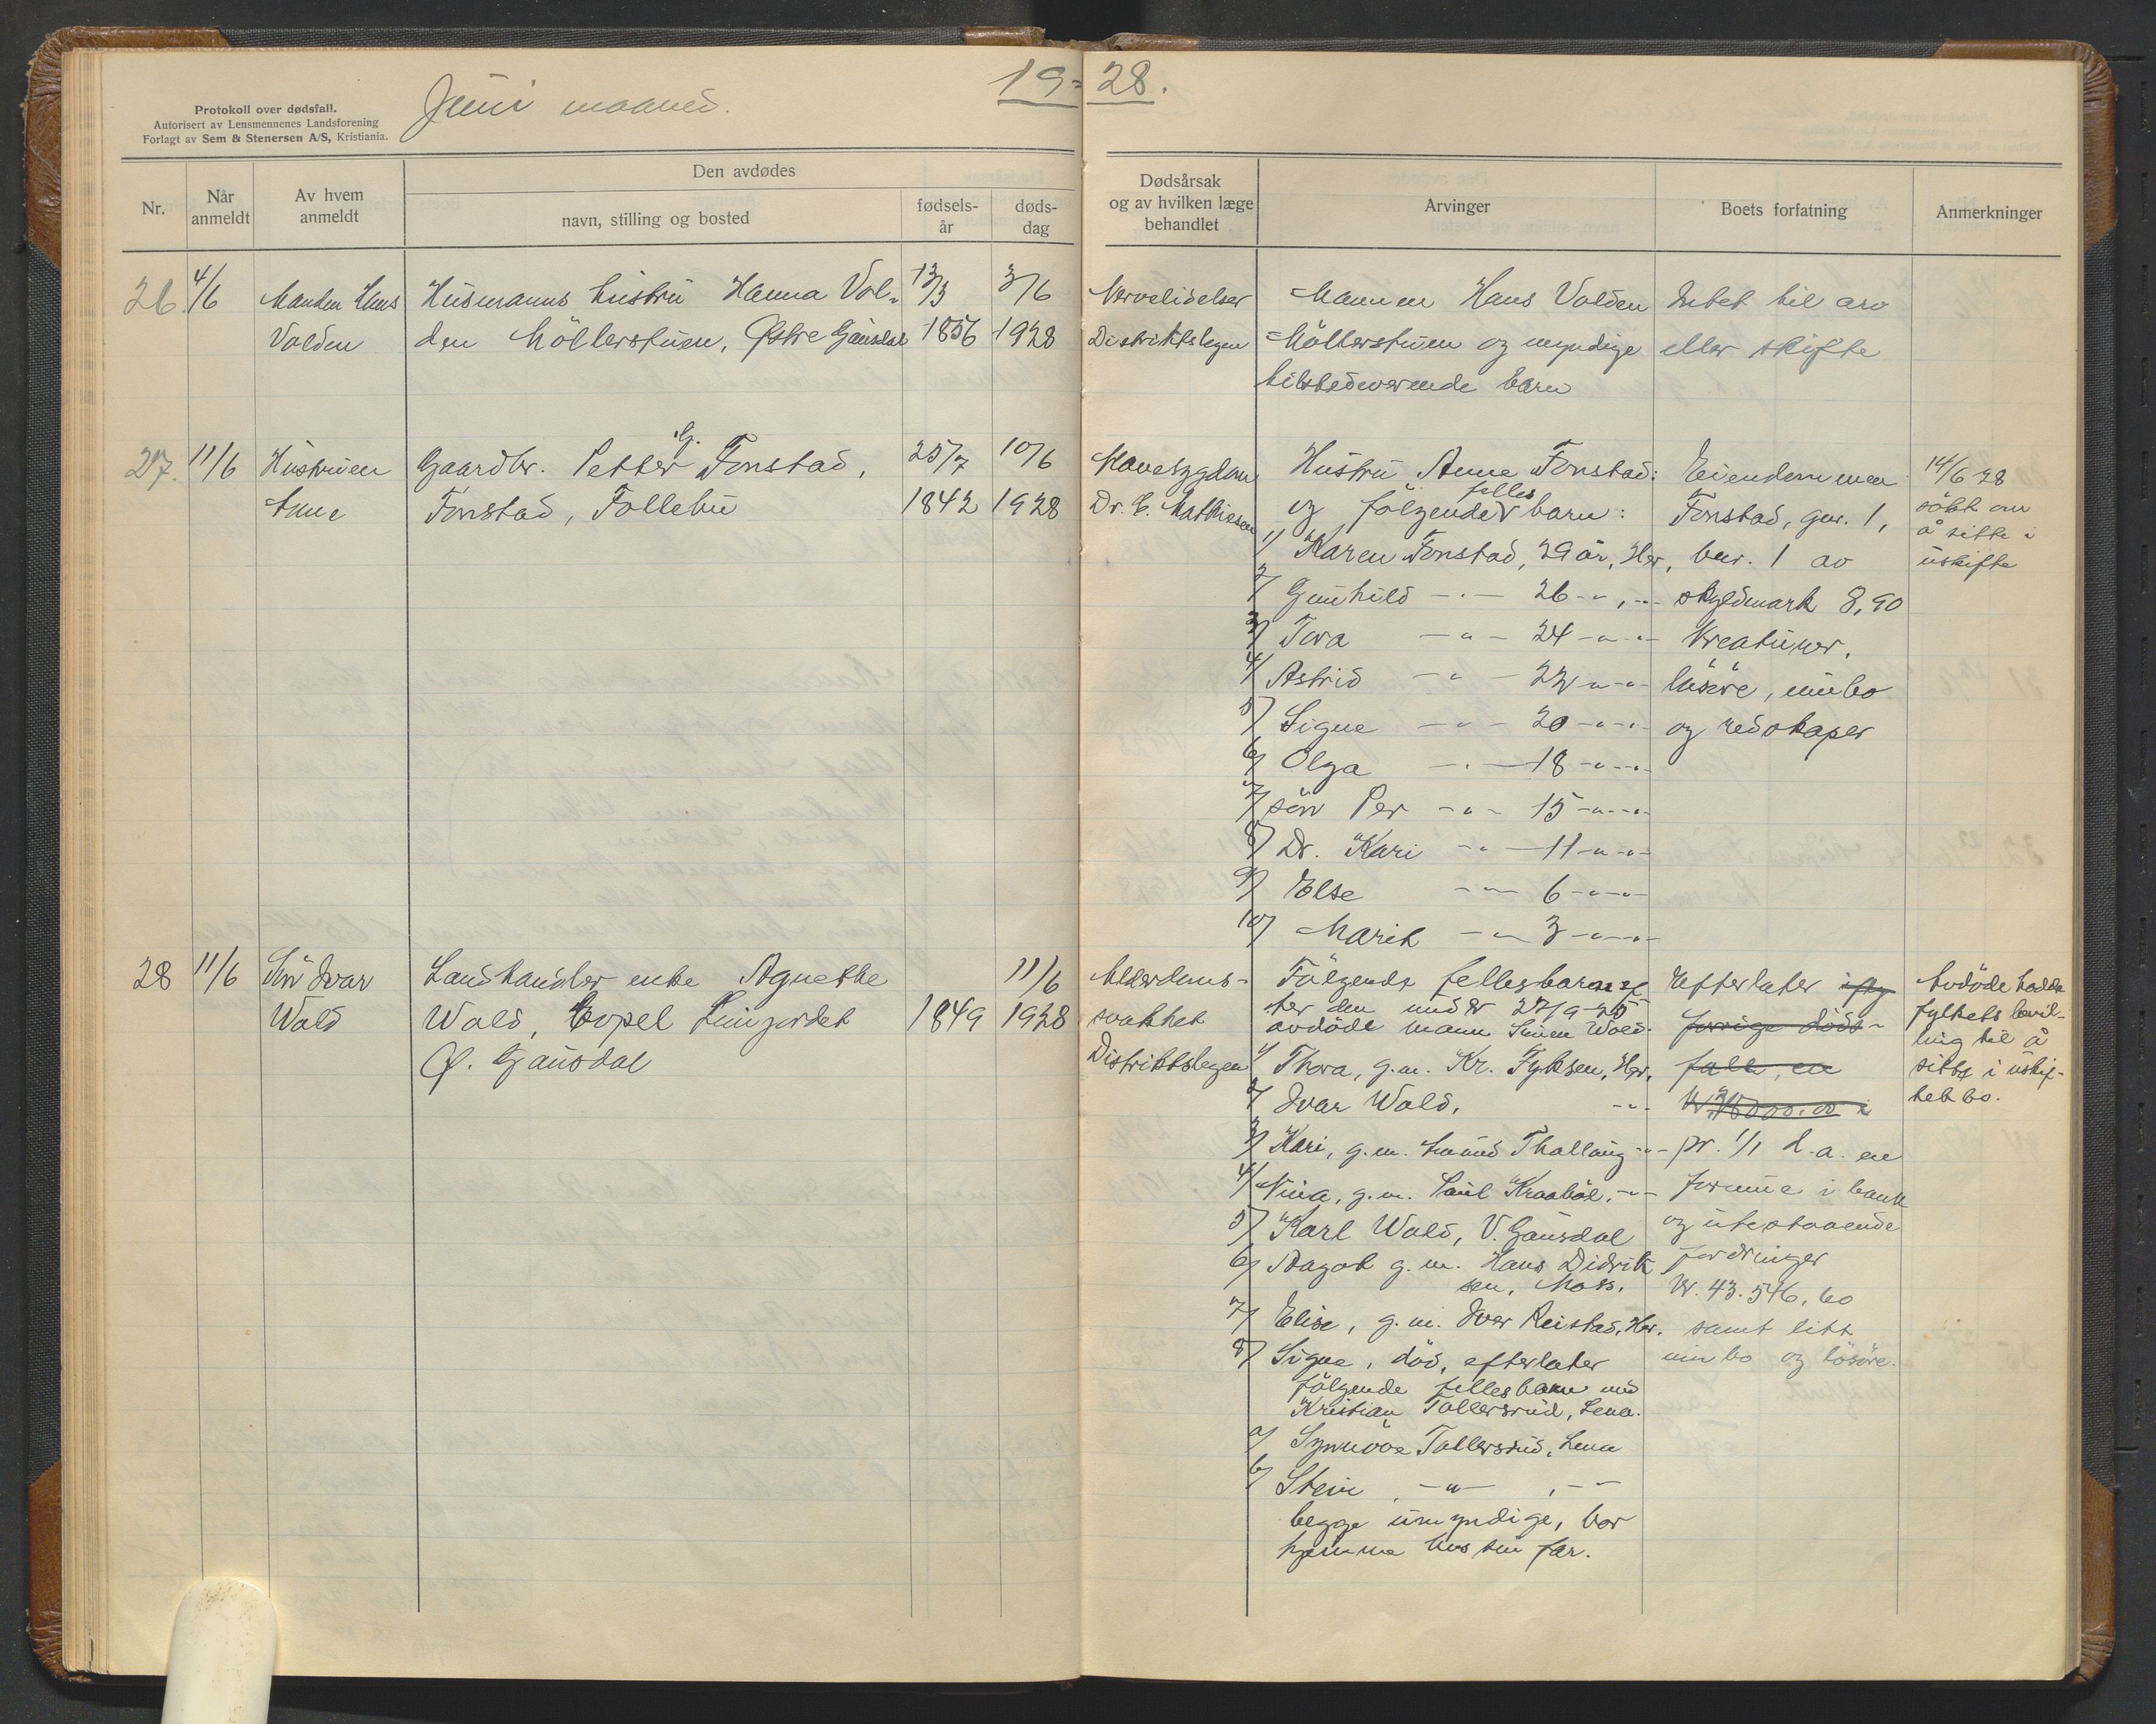 Protokoll over dødsfall.
Autorisert av Lensmennenes Landsforening
Forlagt av Sem & Stenersen A/S, Kristiania.
Juni maaned.
19-28.
Nr.
Når anmeldt
Av hvem anmeldt
Den avdødes
navn, stilling og bosted
fødsels-år
døds-dag
Dødsårsak og av hvilken læge behandlet
Arvinger
Boets forfatning
Anmerkninger
26. 4/6 Manden Hans Husmanns hustru Hanna Vol- 13/3 3/6
Volden den Möllerstuen, Østre Gausdal 1856 1928
Nervelidelser
Distriktslegen
Mannen Hans Volden
Möllerstuen og myndige
tilstedeværende barn
Intet til arv
eller skifte
27. 11/6 Hustruen Gaardbr. Petter G. Fonstad, 25/7 10/6
Anne Fonstad, Follebu 1842 1928
Mavesygdom
Dr. E. Mathiesen
Hustru Anne Fonstad:
og følgende felles barn:
1/ Karen Fonstad, 29 år, Her,
2/ Gunhild -"- 26 -"-, -"-
3/ Tora -"- 24 -"- -"-
4/ Astrid -"- 22 -"- -"-
5/ Signe -"- 20 -"- -"-
6/ Olga -"- 18 -"- -"-
7/ sön Per -"- 15 -"- -"-
8/ Dr. Kari -"- 11 -"- -"-
9/ Else -"- 6 -"- -"-
10/ Marit -"- 3 -"- -"-
Eiendommen
Fonstad, gnr. 1,
bnr. 1 av
skyldmark 8,90
Kreaturer,
lösöre, innbo
og redskaper
14/6 28
sökt om
å sitte i
uskifte
28 11/6 Sön Ivar Landhandler enke Agnethe 11/6
Wold Wold, Lunjordet 1849 1928
Ø. Gausdal
Alderdoms-
svakhet
Distriktslegen
Fölgende fellesbarn ef
ter den under 27/9-25
avdöde mann Simen Wold.
1/ Thora, g.m. Kr. Fyksen, Her,
2/ Ivar Wold, -"-
3/ Kari, g.m. Amund Thallaug -"-
4/ Nina, g.m. Paul Kraabøl, -"-
5/ Karl Wold, V. Gausdal
6/ Aagot g.m. Hans Didrik
sen, Moss.
7/ Elise, g.m. Iver Reistad, Her.
8/ Signe, död, efterlater
fölgende fellesbarn med
Kristian Tollersrud, Lena.
a/ Synnöve Tollersrud, Lena
b/ Stein, -"- , -"-
begge umyndige, bor
hjemme hos sin far.
Efterlater
forrige döds-
fall, en
pr. 1/1 d.a. en
formue i bank
og utestaaende
fordringer
Kr. 43.546,60
samt litt
innbo og lösöre.
Avdöde hadde
fylkets bevil-
ling til å
sitte i uskif-
tet bo.